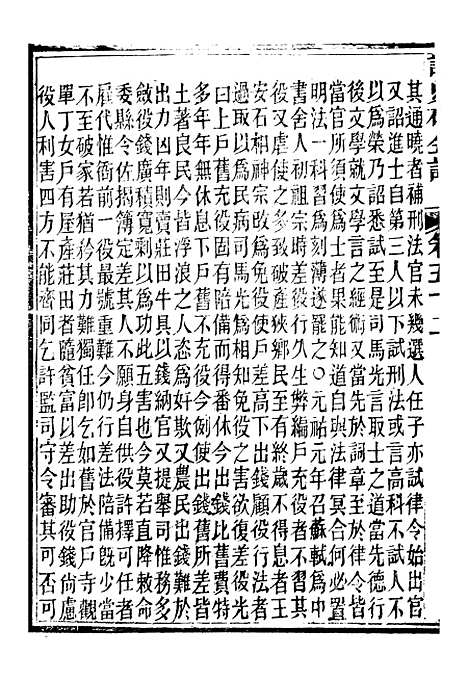 其通曉者補刑法官未幾選人任子亦試律令始出官
又詔進士自第三人以下試刑法或言高科不試人不
以爲榮乃詔悉試至是司馬光言取士之道當先德行
後文學就文學言之經術又當先於詞章至於律令皆
當官所須使爲士者果能知道自與法律冥合何必置
明法一科習爲刻薄遂罷之○元祐元年召蘇軾爲中
書舍人初祖宗時差役行久生弊編戶充役者不習其
役又虐使之多致破產狹鄉民至有終歲不得息者王
安石相神宗改爲免役使戶差高下出錢顧役行法者
過取以爲民病司馬光爲相知免役之害欲復差役光
曰上戶舊充役固有陪備而得番休今出錢比舊費特
多年年無休息下戶舊不充役今例使出錢舊所差皆
土著良民今皆浮浪之人恣爲姦欺又農民出錢難於
出力凶年則賣莊田牛具以錢納官又提舉司惟務多
斂役錢廣積寬剩以爲功此五害也今莫若直降敕命
委縣令佐揭簿定差其人不願身自供役許擇可任者
雇代惟衙前一役號重難今仍行差法陪備既少當
不至破家若猶矜其力難獨任卽乞如舊於官戶寺觀
單丁女戶有屋產莊田者隨貧富以差出助役錢尚慮
役人利害四方不能齊同乞許監司守令審其可否可
卷五十二